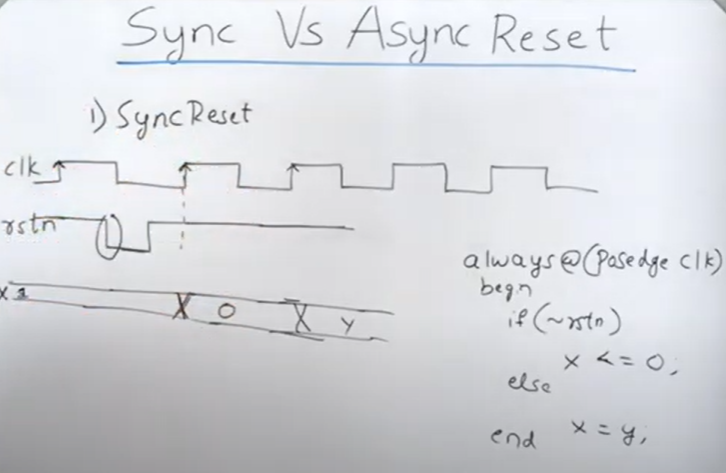 Sync Vs Async Reset
1) Sync Reset
clk
rstn
x 1
X 0 X y
always@(posedge clk)
begn
if(~rstn)
x <= 0;
else
x = y;
end